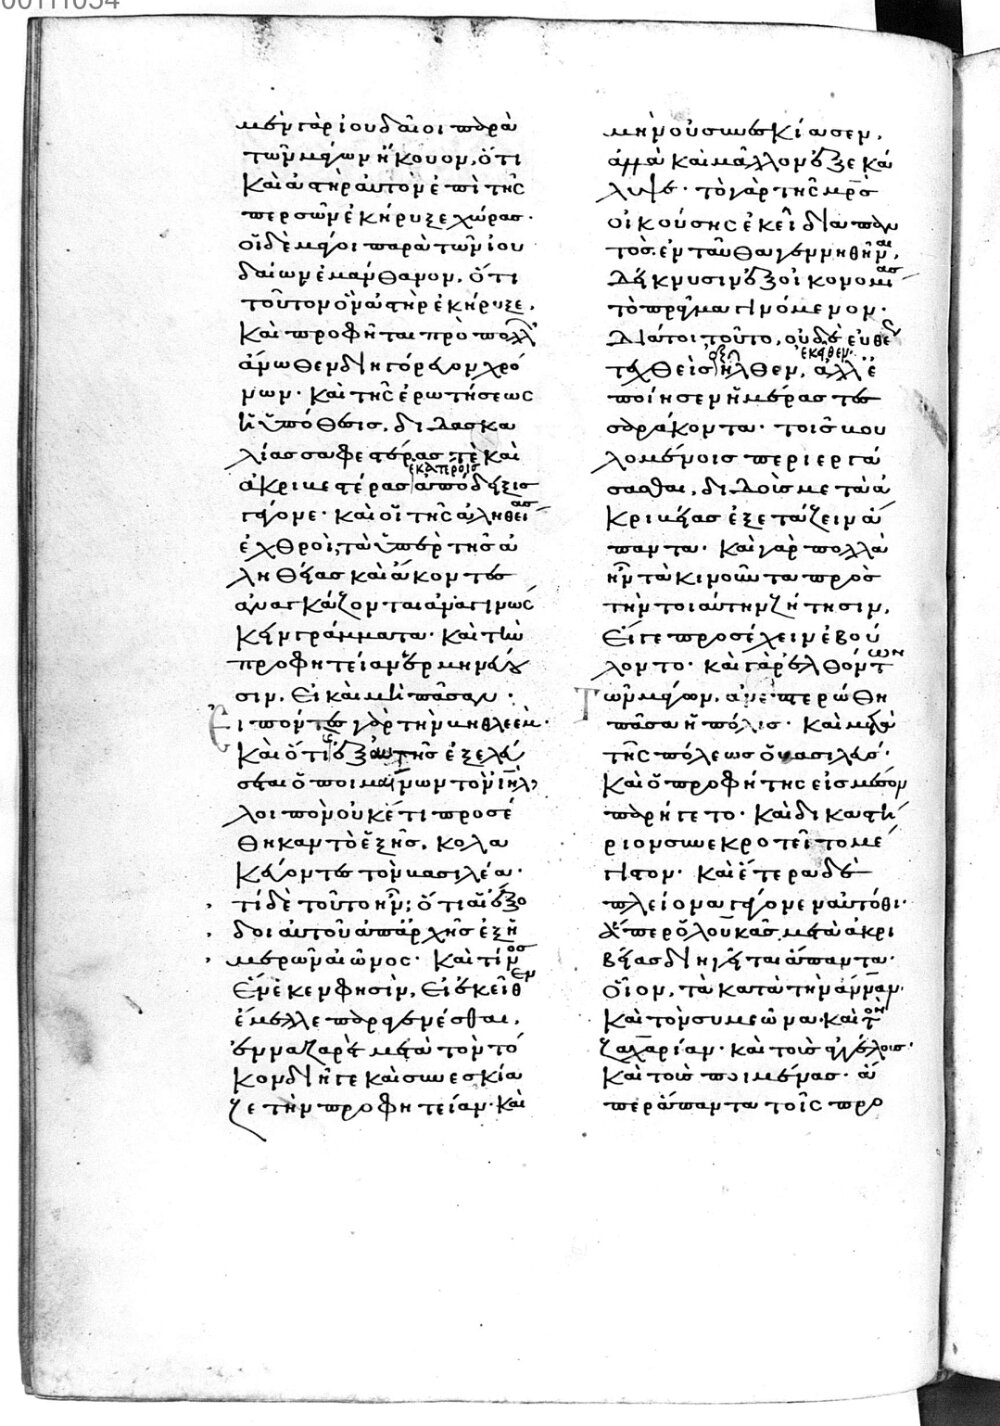 μὲν γὰρ ἰουδαῖοι παρὰ
τῶν μάγων ἤκουον, ὅτι
καὶ ἀστὴρ αὐτὸν ἐπὶ τῆς
περσῶν ἐκήρυξε χώρας·
οἱ δὲ μάγοι παρὰ τῶν ἰου
δαίων ἐμάνθανον, ὅτι
τοῦτον ὃν ἀστὴρ ἐκήρυξε,
καὶ προφῆται πρὸ πολλ
ἄνωθεν διηγόρευον χρό
νων· καὶ τῆς ἐρωτήσεως
ἡ ὑπόθεσις, διδασκα
λίας σαφεστέρας τὲ καὶ
ἑκατέροις
ἀκριβεστέρας ἀπόδειξις
γέγονε· καὶ οἱ τῆς ἀληθεί
ας
ἐχθροὶ, τὰ ὑπὲρ τῆς ἀ
ληθείας καὶ ἄκοντες
ἀναγκάζονται ἀναγινώσ
κειν γράμματα· καὶ τὴν
προφητείαν ἑρμηνεύου
σιν, εἰ καὶ μὴ πᾶσαν·
Εἰπόντες γὰρ τὴν βηθλεὲμ·
καὶ ὅτι ἐξ αὐτῆς ἐξελεύ
σεται ὁ ποιμαίνων τὸν ἰηλ,
λοιπὸν οὐκέτι προσέ
θηκαν τὸ ἑξῆς, κολα
κεύοντες τὸν βασιλέα·
τί δὲ τοῦτο ἦν; ὅτι αἱ ἔξο
δοι αὐτοῦ ἀπ᾽ ἀρχῆς ἐξ ἡ
μερῶν αἰῶνος· καὶ τίν
ος
ἕνεκεν φησὶν, εἰ ἐκεῖθ
εν
ἔμελλε παραγενέσθαι,
ἐν ναζαρὲτ μετὰ τὸν τό
κον διῆγε καὶ συνεσκία
ζε τὴν προφητείαν· καὶ
μὴν οὐ συνεσκίασεν,
ἀλλὰ καὶ μᾶλλον ἐξεκά
λυψε· τὸ γὰρ τῆς μρς
οἰκούσης ἐκεῖ διαπαν
τὸς, ἐνταῦθα γεννηθῆν
αι,
δείκνυσιν ἐξ οἰκονομί
ας
τὸ πρᾶγμα γινόμενον·
διάτοι τοῦτο, οὐδὲ εὐθὲ
τεχθεὶς ἐξῆλθεν ἐκεῖθεν, ἀλλ᾽ ἐ
ποίησεν ἡμέρας τεσ
σαράκοντα· τοῖς βου
λομένοις περιεργά
σασθαι, διδοὺς μετὰ ἀ
κριβείας ἐξετάζειν ἅ
παντα· καὶ γὰρ πολλὰ
ἦν τὰ κινοῦντα πρὸς
τὴν τοιαύτην ζήτησιν,
εἴγε προσέχειν ἐβού
λοντο· καὶ γὰρ ἐλθόντ
ων
τῶν μάγων, ἀνεπτερώθη
πᾶσα ἡ πόλις· καὶ μετὰ
τῆς πόλεως ὁ βασιλεύς·
καὶ ὁ προφήτης εἰς μέσον
παρήγετο· καὶ δικαστή
ριον συνεκροτεῖτο μέ
γιστον· καὶ ἕτερα δὲ
πλείονα γέγονεν αὐτόθι·
ἅπερ ὁ λουκᾶς μετὰ ἀκρι
βείας διηγεῖται ἅπαντα·
οἷον, τὰ κατὰ τὴν ἄνναν·
καὶ τὸν συμεῶνα· καὶ τὸν
ζαχαρίαν· καὶ τοὺς ἀγγέλους·
καὶ τοὺς ποιμένας· ἅ
περ ἅπαντα τοῖς προ